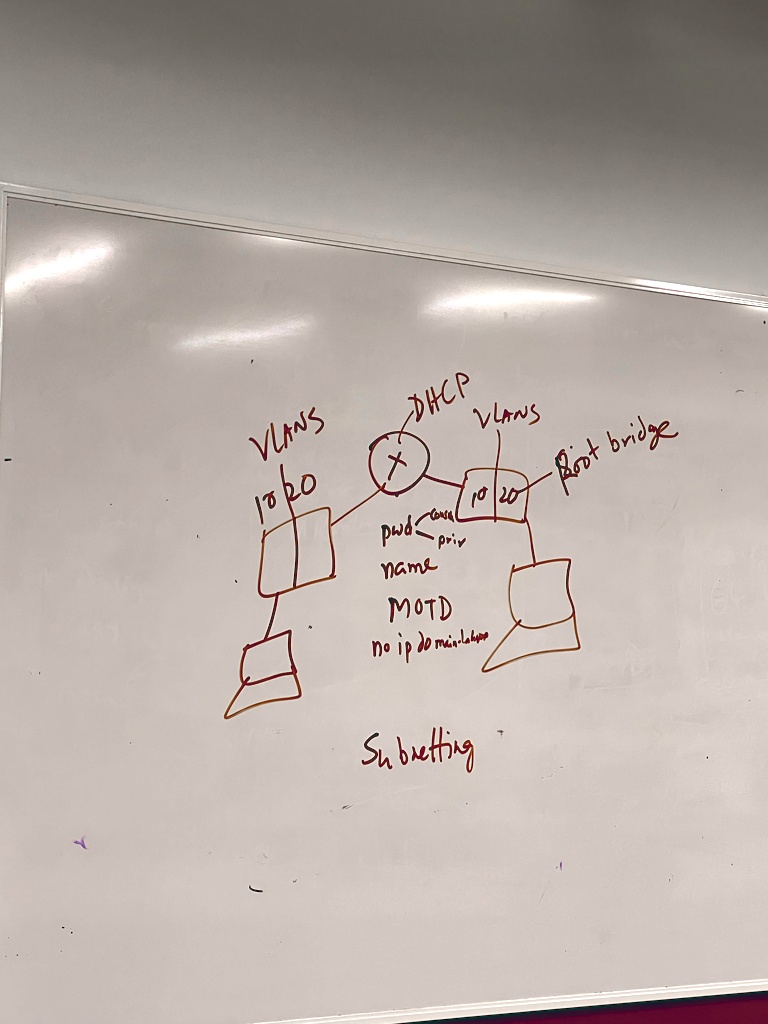 DHCP
VLANS
VLANS
Root bridge
10 20
10 20
pwd
priv
name
MOTD
no ip domain-lookup
Subnetting